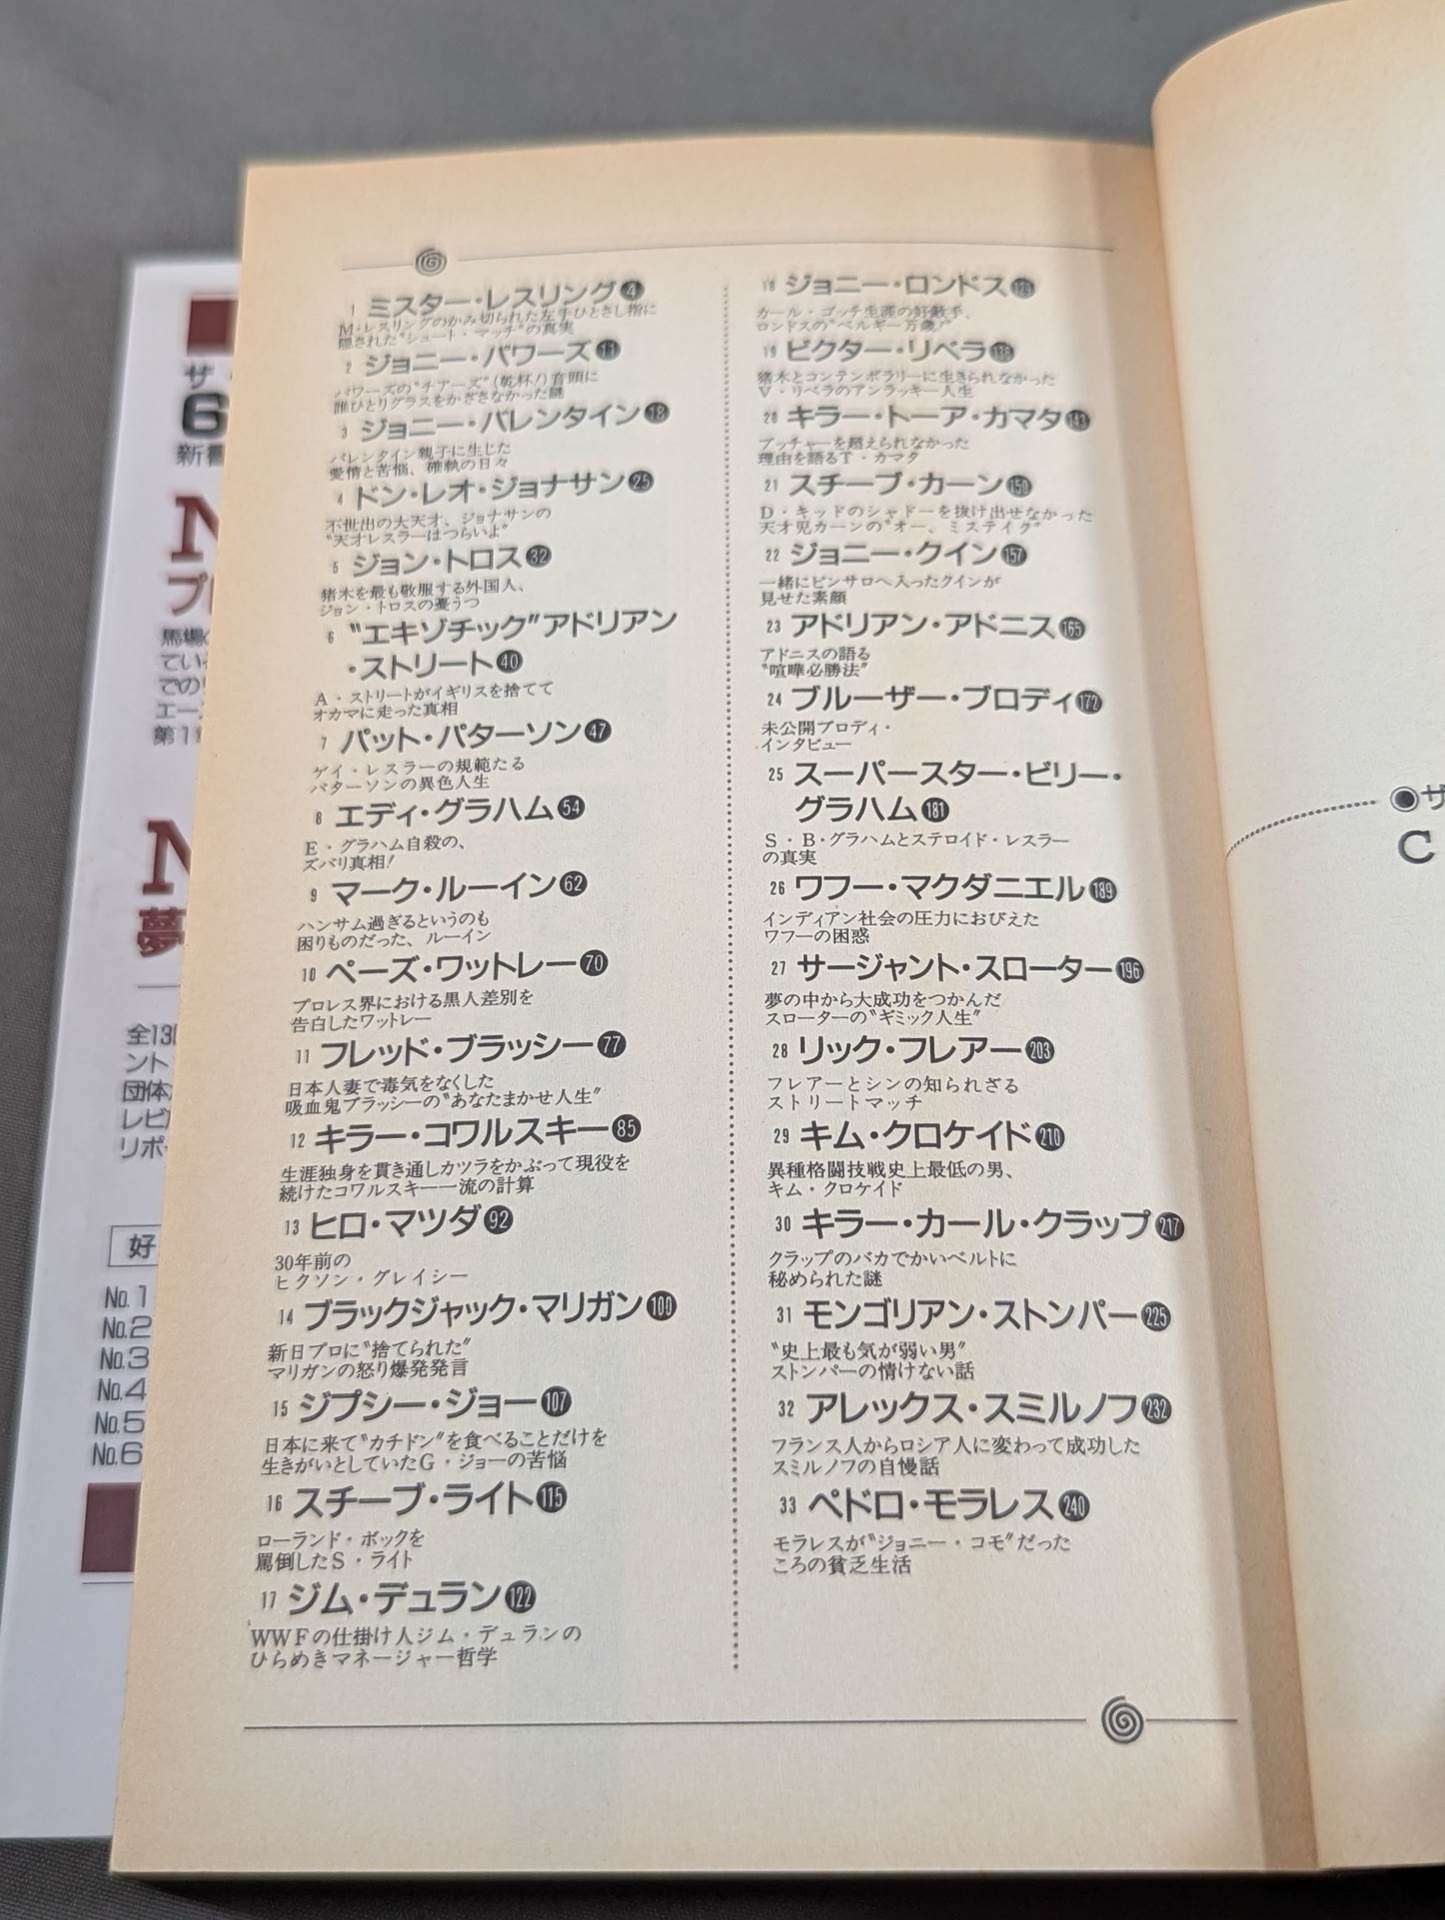 1 ミスター・レスリング 4
M・レスリングのかみ切られた左手ひとさし指に
隠された“シュート・マッチ”の真実
2 ジョニー・パワーズ 11
パワーズの“チアーズ”(乾杯!)音頭に
誰ひとりグラスをかざさなかった謎
3 ジョニー・バレンタイン 18
バレンタイン親子に生じた
愛情と苦悩、確執の日々
4 ドン・レオ・ジョナサン 25
不世出の大天才、ジョナサンの
“天才レスラーはつらいよ”
5 ジョン・トロス 32
猪木を最も敬服する外国人、
ジョン・トロスの憂うつ
6 “エキゾチック”アドリアン
・ストリート 40
A・ストリートがイギリスを捨てて
オカマに走った真相
7 パット・パターソン 47
ゲイ・レスラーの規範たる
パターソンの異色人生
8 エディ・グラハム 54
E・グラハム自殺の、
ズバリ真相!
9 マーク・ルーイン 62
ハンサム過ぎるというのも
困りものだった、ルーイン
10 ベーズ・ワットレー 70
プロレス界における黒人差別を
告白したワットレー
11 フレッド・ブラッシー 77
日本人妻で毒気をなくした
吸血鬼ブラッシーの“あなたまかせ人生”
12 キラー・コワルスキー 85
生涯独身を貫き通しカツラをかぶって現役を
続けたコワルスキー一流の計算
13 ヒロ・マツダ 92
30年前の
ヒクソン・グレイシー
14 ブラックジャック・マリガン 100
新日プロに“捨てられた”
マリガンの怒り爆発発言
15 ジプシー・ジョー 107
日本に来て“カチドン”を食べることだけを
生きがいとしていたG・ジョーの苦悩
16 スチーブ・ライト 115
ローランド・ボックを
罵倒したS・ライト
17 ジム・デュラン 122
WWFの仕掛け人ジム・デュランの
ひらめきマネージャー哲学
18 ジョニー・ロンドス 129
カール・ゴッチ生涯の好敵手、
ロンドスの“ベルギー万歳!”
19 ビクター・リベラ 136
猪木とコンテンポラリーに生きられなかった
V・リベラのアンラッキー人生
20 キラー・トーア・カマタ 143
ブッチャーを超えられなかった
理由を語るT・カマタ
21 スチーブ・カーン 150
D・キッドのシャドーを抜け出せなかった
天才児カーンの“オー、ミステイク”
22 ジョニー・クイン 157
一緒にピンサロへ入ったクインが
見せた素顔
23 アドリアン・アドニス 165
アドニスの語る
“喧嘩必勝法”
24 ブルーザー・ブロディ 172
未公開ブロディ・
インタビュー
25 スーパースター・ビリー・
グラハム 181
S・B・グラハムとステロイド・レスラー
の真実
26 ワフー・マクダニエル 189
インディアン社会の圧力におびえた
ワフーの困惑
27 サージャント・スローター 196
夢の中から大成功をつかんだ
スローターの“ギミック人生”
28 リック・フレアー 203
フレアーとシンの知られざる
ストリートマッチ
29 キム・クロケイド 210
異種格闘技戦史上最低の男、
キム・クロケイド
30 キラー・カール・クラップ 217
クラップのバカでかいベルトに
秘められた謎
31 モンゴリアン・ストンパー 225
“史上最も気が弱い男”
ストンパーの情けない話
32 アレックス・スミルノフ 232
フランス人からロシア人に変わって成功した
スミルノフの自慢話
33 ペドロ・モラレス 240
モラレスが“ジョニー・コモ”だった
ころの貧乏生活
ザ
6
新
プ
馬場
てい
での
エー
第1
夢
全13
ント
団体
レビ
リポ
好
No.1
No.2
No.3
No.4
No.5
No.6
●ザ
C